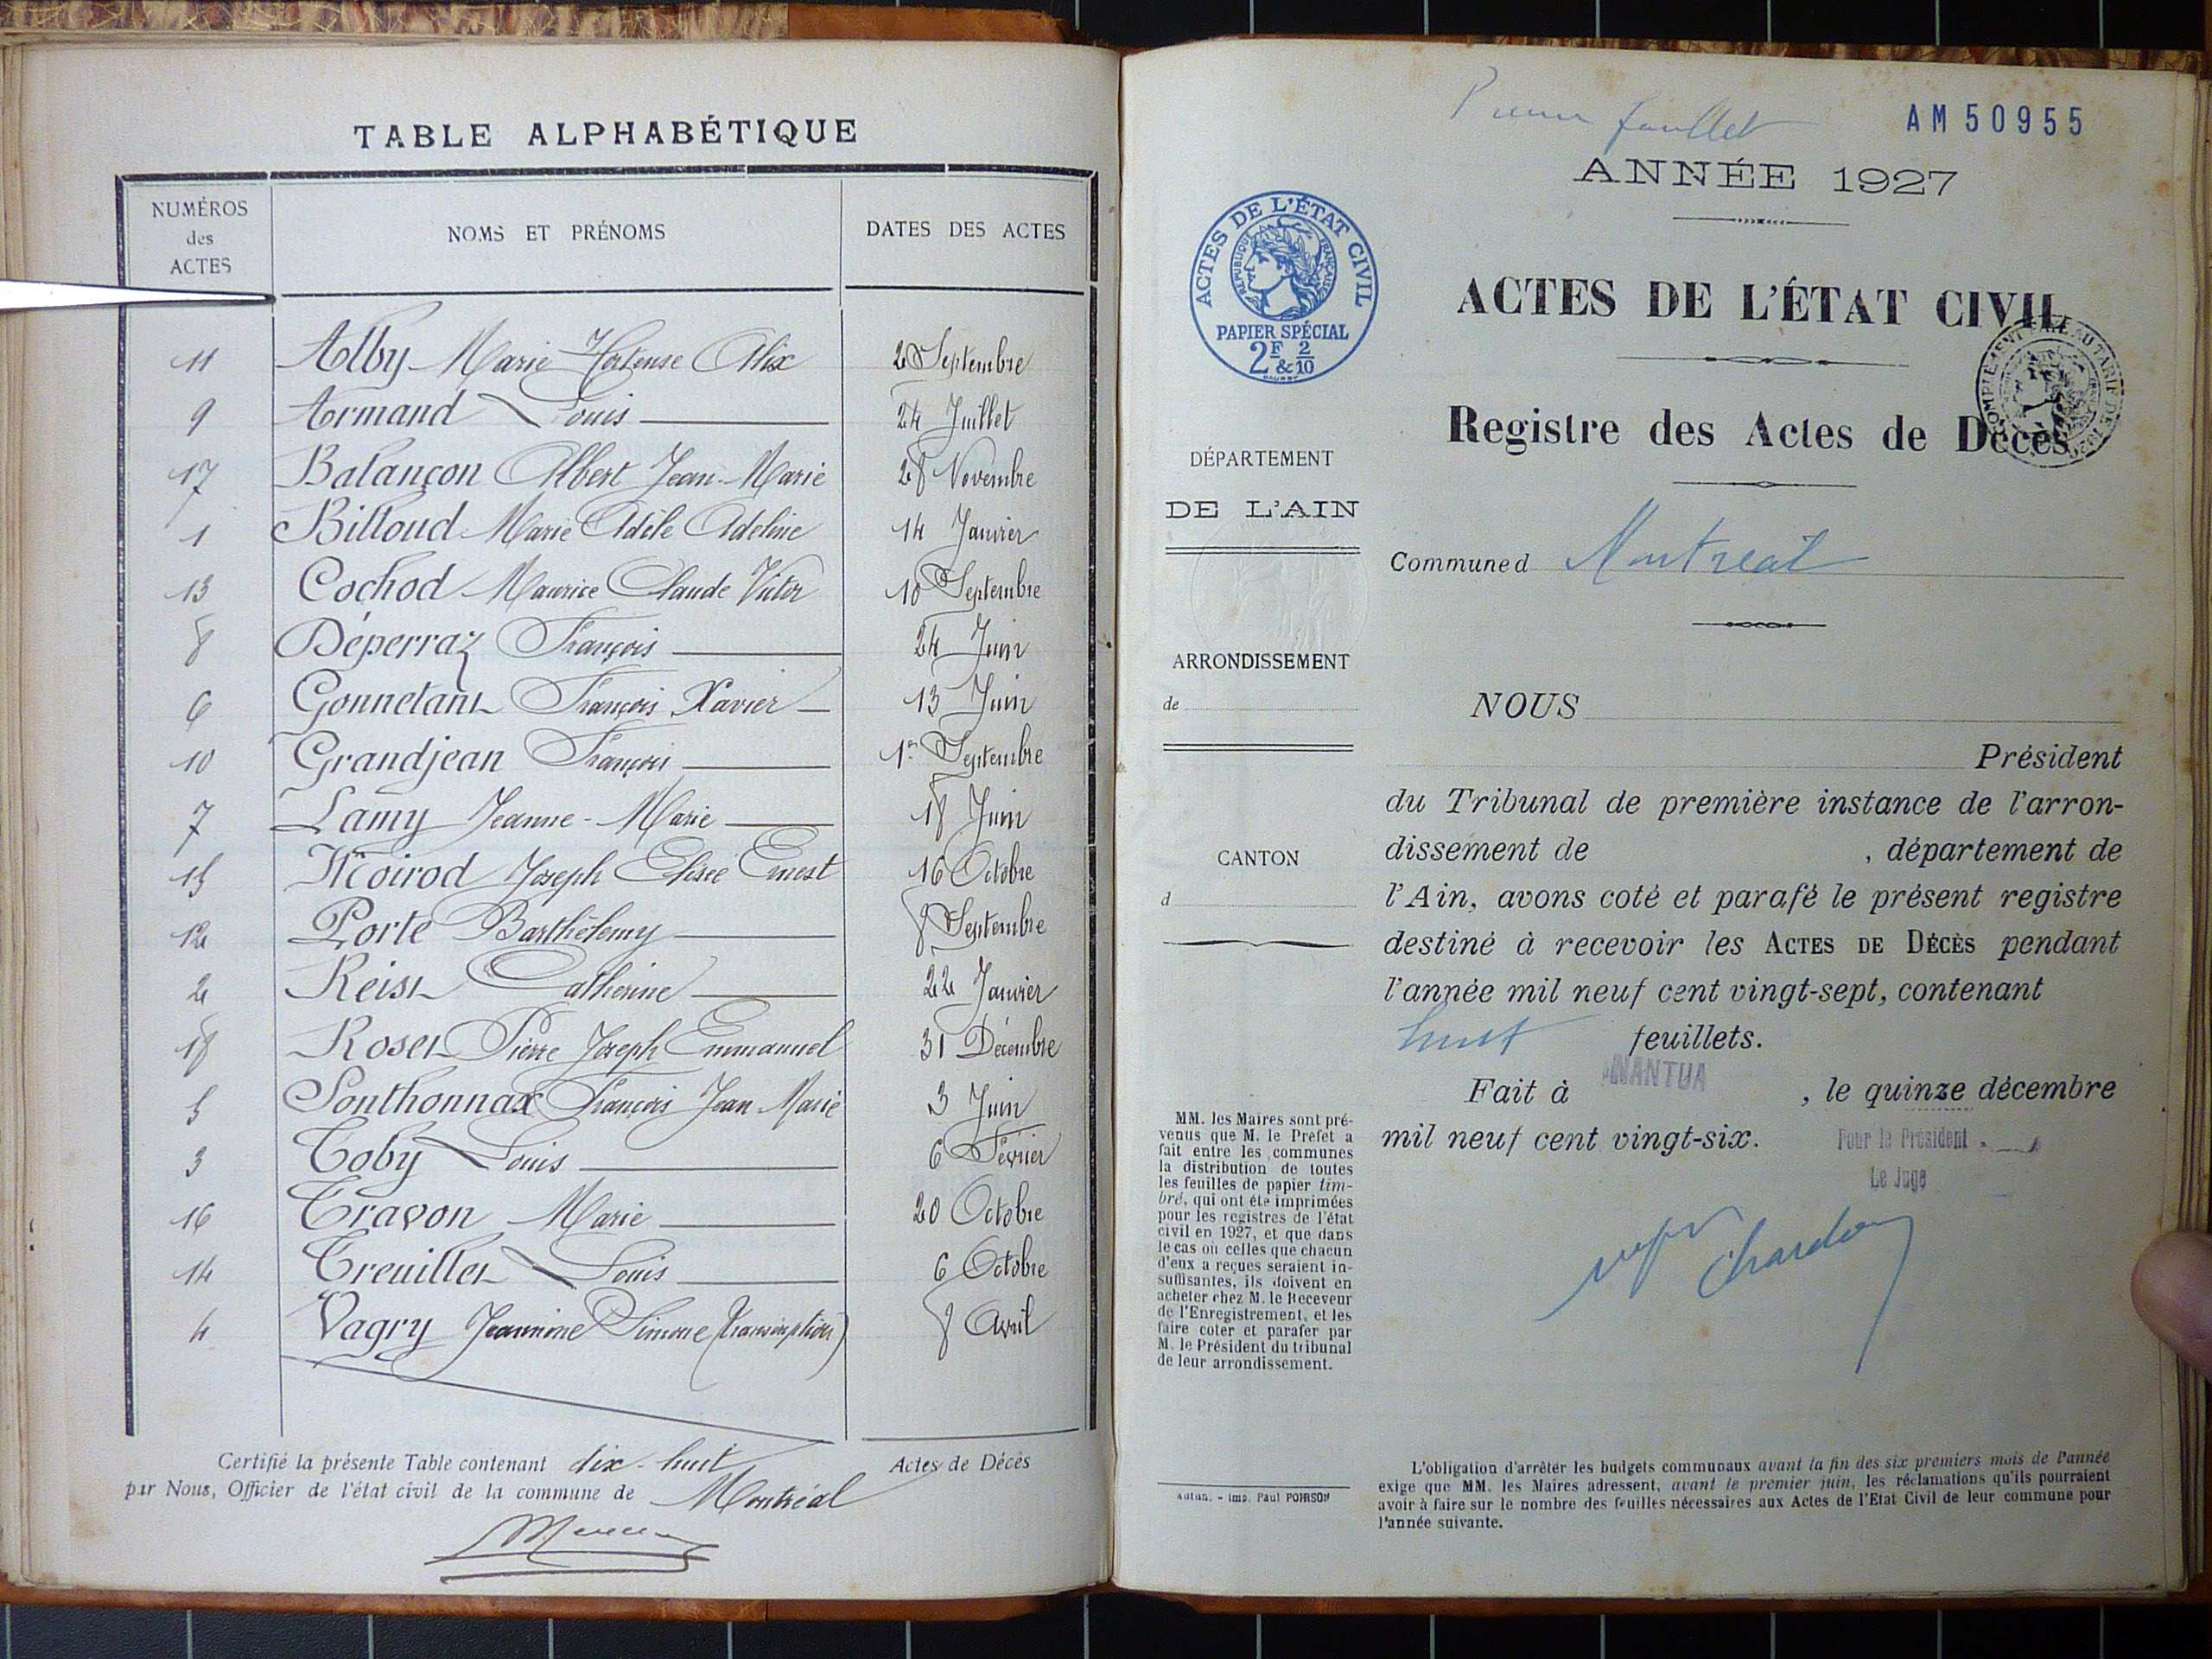 TABLE ALPHABÉTIQUE
NUMÉROS des ACTES
NOMS ET PRÉNOMS
DATES DES ACTES
11 Alby Marie Hortense Alix 2 Septembre
9 Armand Louis 24 Juillet
17 Balançon Albert Jean-Marie 28 Novembre
1 Billoud Marie Adèle Adeline 14 Janvier
13 Cochod Maurice Claude Victor 10 Septembre
8 Déperraz François 24 Juin
6 Gonnetant François Xavier 13 Juin
10 Grandjean François 1er Septembre
7 Lamy Jeanne-Marie 18 Juin
15 Moirod Joseph Elisée Ernest 16 Octobre
12 Porte Barthélemy 8 Septembre
2 Reiss Catherine 22 Janvier
18 Roser Pierre Joseph Emmanuel 31 Décembre
5 Sonthonnax François Jean Marie 3 Juin
3 Toby Louis 6 Février
16 Travon Marie 20 Octobre
14 Treuiller Louis 6 Octobre
4 Vagry Jeannine Simone (transcription) 8 Avril
Certifié la présente Table contenant dix-huit Actes de Décès
par Nous, Officier de l'état civil de la commune de Montréal
Premier feuillet
AM 50955
ANNÉE 1927
ACTES DE L'ÉTAT CIVIL
RÉPUBLIQUE FRANÇAISE
PAPIER SPÉCIAL
2F & 2/10
ACTES DE L'ÉTAT CIVIL
Registre des Actes de Décès
DÉPARTEMENT
DE L'AIN
Commune d Montréal
ARRONDISSEMENT
de
CANTON
d
NOUS
Président
du Tribunal de première instance de l'arron-
dissement de , département de
l'Ain, avons coté et parafé le présent registre
destiné à recevoir les ACTES DE DÉCÈS pendant
l'année mil neuf cent vingt-sept, contenant
huit feuillets.
Fait à NANTUA, le quinze décembre
mil neuf cent vingt-six.
Pour le Président
Le Juge
Chardon
MM. les Maires sont pré-
venus que M. le Préfet a
fait entre les communes
la distribution de toutes
les feuilles de papier tim-
bré, qui ont été imprimées
pour les registres de l'état
civil en 1927, et que dans
le cas où celles que chacun
d'eux a reçues seraient in-
suffisantes, ils doivent en
acheter chez M. le Receveur
de l'Enregistrement, et les
faire coter et parafer par
M. le Président du tribunal
de leur arrondissement.
Autun. - Imp. Paul POIRSON
L'obligation d'arrêter les budgets communaux avant la fin des six premiers mois de l'année
exige que MM. les Maires adressent, avant le premier juin, les réclamations qu'ils pourraient
avoir à faire sur le nombre des feuilles nécessaires aux Actes de l'Etat Civil de leur commune pour
l'année suivante.